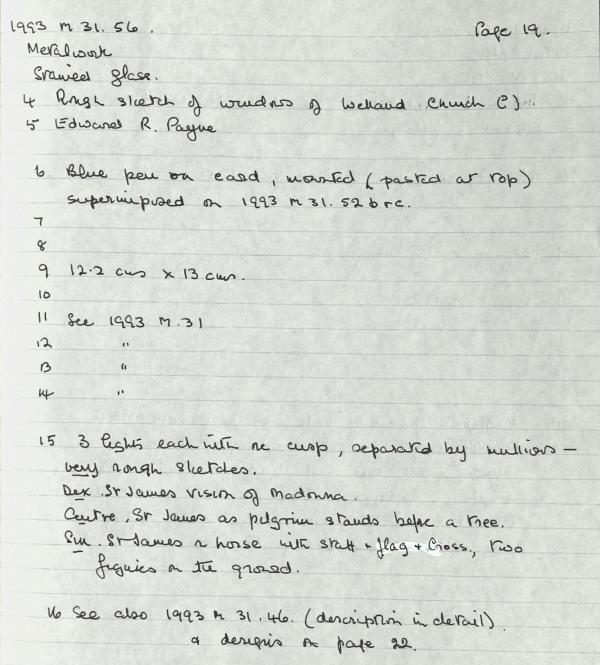 1993 M 31. 56. Page 19.
Metalwork
Stained glass.
4 Rough sketch of windows of Welland Church (?)
5 Edward R. Payne
6 Blue pen on card, mounted (pasted at top)
superimposed on 1993 M 31. 52 b+c.
7
8
9 12.2 cms x 13 cms.
10
11 See 1993 M. 31
12 "
13 "
14 "
15 3 lights each with cusp, separated by mullions —
very rough sketches.
Dex. St James vision of Madonna.
Centre, St James as pilgrim stands before a tree.
Sin. St James on horse with staff + flag + Cross., two
figures on the ground.
16 See also 1993 M 31. 46. (description in detail)
& designs on page 22.